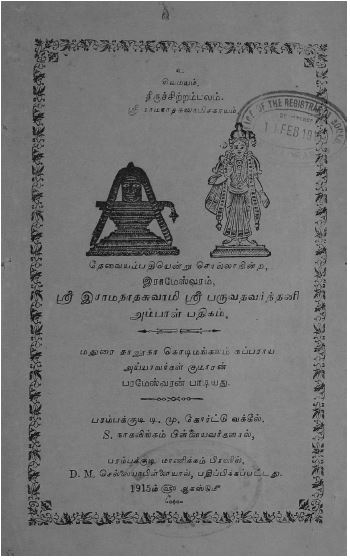 உ
சிவமயம்.
திருச்சிற்றம்பலம்.
ஸ்ரீ ராமநாதஸ்வாமிசகாயம்
OF THE REGISTRAR
FEB 19
தேவையம்பதியென்று சொல்லாநின்ற,
இராமேஸ்வரம்,
ஸ்ரீ இராமநாதசுவாமி ஸ்ரீ பருவதவர்ந்தனி
அம்பாள் பதிகம்.
மதுரை தாலூகா கொடிமங்கலம் சுப்பராய
அய்யரவர்கள் குமாரன்
பரமேஸ்வரன் பாடியது.
பரம்பக்குடி டி. மு. கோர்ட்டு வக்கீல்.
S. நாகலிங்கம் பிள்ளையவர்களால்,
பரம்பக்குடி மாணிக்கம் பிரஸில்,
D. M. செல்லையாபிள்ளையால், பதிப்பிக்கப்பட்டது.
1915ம் ௵ ஆகஸ்டு௴